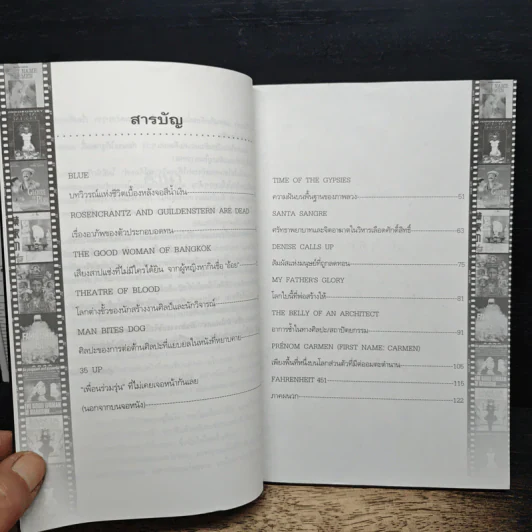 สารบัญ
BLUE
บทวิวรณ์แห่งชีวิตเบื้องหลังจอสีน้ำเงิน
ROSENCRANTZ AND GUILDENSTERN ARE DEAD
เรื่องอาภัพของตัวประกอบอดทน
THE GOOD WOMAN OF BANGKOK
เสียงสาปแช่งที่ไม่มีใครได้ยิน จากผู้หญิงหากินชื่อ "อ้อย"
THEATRE OF BLOOD
โลกต่างขั้วของนักสร้างงานศิลป์และนักวิจารณ์
MAN BITES DOG
ศิลปะของการต่อต้านศิลปะที่แยบยลในหนังที่หยาบคาย
35 UP
"เพื่อนร่วมรุ่น" ที่ไม่เคยเจอหน้ากันเลย
(นอกจากบนจอหนัง)
TIME OF THE GYPSIES
ความฝันบนพื้นฐานของภาพลวง 51
SANTA SANGRE
ศรัทธาพยาบาทและจิตอาฆาตในวิหารเลือดศักดิ์สิทธิ์ 63
DENISE CALLS UP
สัมผัสแห่งมนุษย์ที่ถูกลดทอน 75
MY FATHER'S GLORY
โลกใบนี้ที่พ่อสร้างให้ 81
THE BELLY OF AN ARCHITECT
อาการช้ำในทางศิลปะ/สถาปัตยกรรม 91
PRÉNOM CARMEN (FIRST NAME: CARMEN)
เพียงพื้นที่หนึ่งบนโลกส่วนตัวที่มีต่ออมตะตำนาน 105
FAHRENHEIT 451 115
ภาคผนวก 122